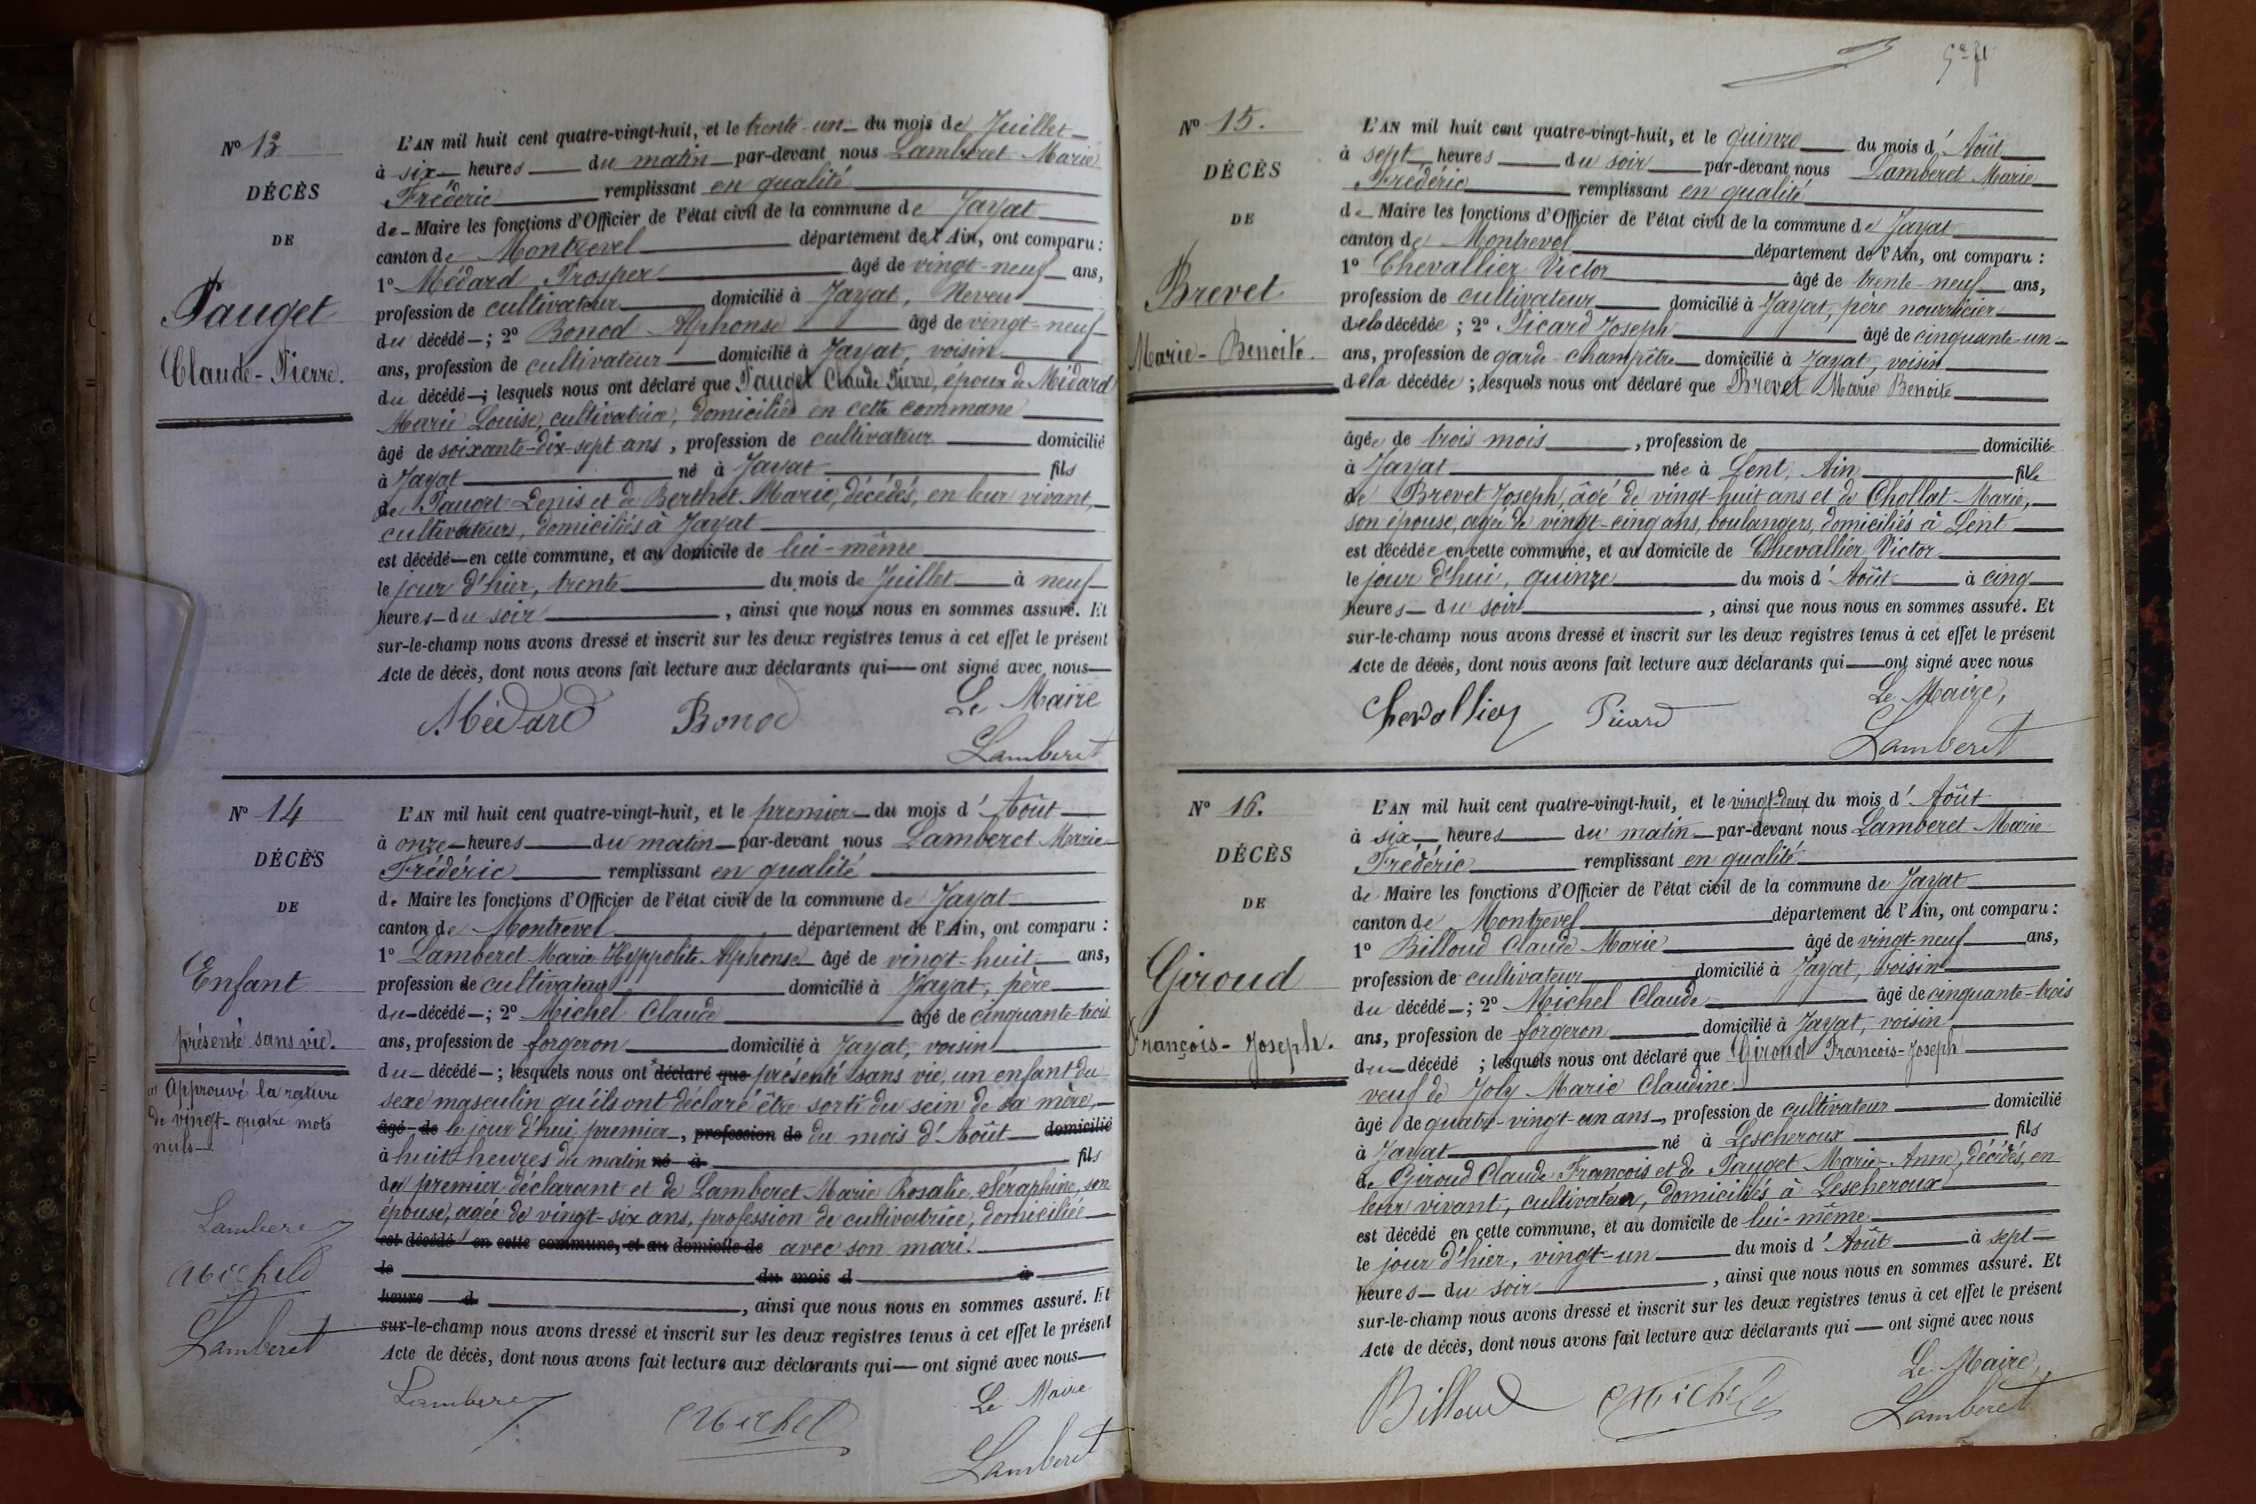 Nº 13
DÉCÈS
DE
Pauget
Claude-Pierre.
L'AN mil huit cent quatre-vingt-huit, et le trente-un du mois de Juillet
à six heures du matin par-devant nous Lamberet Marie
Frédéric remplissant en qualité
de Maire les fonctions d'Officier de l'état civil de la commune de Jayat
canton de Montrevel département de l'Ain, ont comparu :
1º Médard Prosper âgé de vingt-neuf ans,
profession de cultivateur domicilié à Jayat, Neveu
du décédé ; 2º Bonod Alphonse âgé de vingt-neuf
ans, profession de cultivateur domicilié à Jayat, voisin
du décédé ; lesquels nous ont déclaré que Pauget Claude Pierre, époux de Médard
Marie Louise, cultivatrice, domiciliée en cette commune
âgé de soixante-dix-sept ans, profession de cultivateur domicilié
à Jayat né à Jayat fils
de Pauget Denis et de Berthet Marie, décédés, en leur vivant,
cultivateurs, domiciliés à Jayat
est décédé en cette commune, et au domicile de lui-même
le jour d'hier, trente du mois de Juillet à neuf
heures du soir, ainsi que nous nous en sommes assuré. Et
sur-le-champ nous avons dressé et inscrit sur les deux registres tenus à cet effet le présent
Acte de décès, dont nous avons fait lecture aux déclarants qui ont signé avec nous
Le Maire
Médard Bonod
Lamberet
Nº 14
DÉCÈS
DE
Enfant
présenté sans vie.
Approuvé la rature
de vingt-quatre mots
nuls
Lamberet
Michel
Lamberet
L'AN mil huit cent quatre-vingt-huit, et le premier du mois d'Août
à onze heures du matin par-devant nous Lamberet Marie
Frédéric remplissant en qualité
de Maire les fonctions d'Officier de l'état civil de la commune de Jayat
canton de Montrevel département de l'Ain, ont comparu :
1º Lamberet Marie Hyppolite Alphonse âgé de vingt-huit ans,
profession de cultivateur domicilié à Jayat, père
du décédé ; 2º Michel Claude âgé de cinquante-trois
ans, profession de forgeron domicilié à Jayat, voisin
du décédé ; lesquels nous ont déclaré que présenté sans vie, un enfant du
sexe masculin qu'ils ont déclaré être sorti du sein de sa mère,
âgé de le jour d'hui premier, profession de du mois d'Août domicilié
à huit heures du matin né à fils
du premier déclarant et de Lamberet Marie Rosalie, Séraphine, son
épouse, agée de vingt-six ans, profession de cultivatrice, domiciliée
est décédé en cette commune, et au domicile de avec son mari.
le du mois d à
heure d, ainsi que nous nous en sommes assuré. Et
sur-le-champ nous avons dressé et inscrit sur les deux registres tenus à cet effet le présent
Acte de décès, dont nous avons fait lecture aux déclarants qui ont signé avec nous
Le Maire
Lamberet Michel
Lamberet
Nº 15.
DÉCÈS
DE
Brevet
Marie-Benoite.
L'AN mil huit cent quatre-vingt-huit, et le quinze du mois d'Août
à sept heures du soir par-devant nous Lamberet Marie
Frédéric remplissant en qualité
de Maire les fonctions d'Officier de l'état civil de la commune de Jayat
canton de Montrevel département de l'Ain, ont comparu :
1º Chevallier Victor âgé de trente-neuf ans,
profession de cultivateur domicilié à Jayat, père nourricier
de la décédée ; 2º Picard Joseph âgé de cinquante-un
ans, profession de garde-champêtre domicilié à Jayat, voisin
de la décédée ; lesquels nous ont déclaré que Brevet Marie Benoite
âgée de trois mois, profession de domiciliée
à Jayat née à Lent, Ain fille
de Brevet Joseph, âgé de vingt-huit ans et de Chollat Marie,
son épouse, agée de vingt-cinq ans, boulangers, domiciliés à Lent
est décédée en cette commune, et au domicile de Chevallier Victor
le jour d'hui, quinze du mois d'Août à cinq
heures du soir, ainsi que nous nous en sommes assuré. Et
sur-le-champ nous avons dressé et inscrit sur les deux registres tenus à cet effet le présent
Acte de décès, dont nous avons fait lecture aux déclarants qui ont signé avec nous
Le Maire,
Chevallier Picard
Lamberet
Nº 16.
DÉCÈS
DE
Giroud
François-Joseph.
L'AN mil huit cent quatre-vingt-huit, et le vingt-deux du mois d'Août
à six heures du matin par-devant nous Lamberet Marie
Frédéric remplissant en qualité
de Maire les fonctions d'Officier de l'état civil de la commune de Jayat
canton de Montrevel département de l'Ain, ont comparu :
1º Billoud Claude Marie âgé de vingt-neuf ans,
profession de cultivateur domicilié à Jayat, voisin
du décédé ; 2º Michel Claude âgé de cinquante-trois
ans, profession de forgeron domicilié à Jayat, voisin
du décédé ; lesquels nous ont déclaré que Giroud François-Joseph
veuf de Joly Marie Claudine
âgé de quatre-vingt-un ans, profession de cultivateur domicilié
à Jayat né à Lescheroux fils
de Giroud Claude François et de Pauget Marie-Anne, décédés, en
leur vivant, cultivateurs, domiciliés à Lescheroux
est décédé en cette commune, et au domicile de lui-même
le jour d'hier, vingt-un du mois d'Août à sept
heures du soir, ainsi que nous nous en sommes assuré. Et
sur-le-champ nous avons dressé et inscrit sur les deux registres tenus à cet effet le présent
Acte de décès, dont nous avons fait lecture aux déclarants qui ont signé avec nous
Le Maire
Billoud Michel
Lamberet